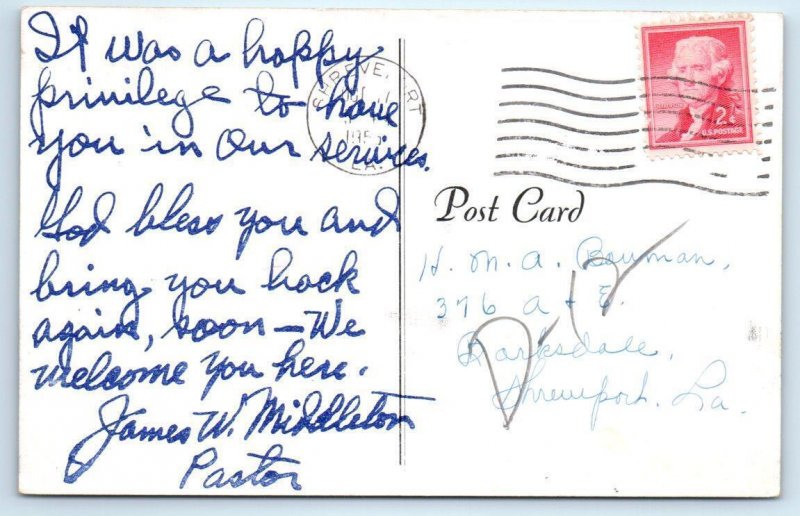 It was a happy
privilege to have
you in our services.
God bless you and
bring you back
again, soon — We
welcome you here.
James W. Middleton
Pastor
SHREVEPORT
LA.
2¢
U.S. POSTAGE
Post Card
H. M. A. Bowman,
376 A + E.
Barksdale,
Shreveport, La.